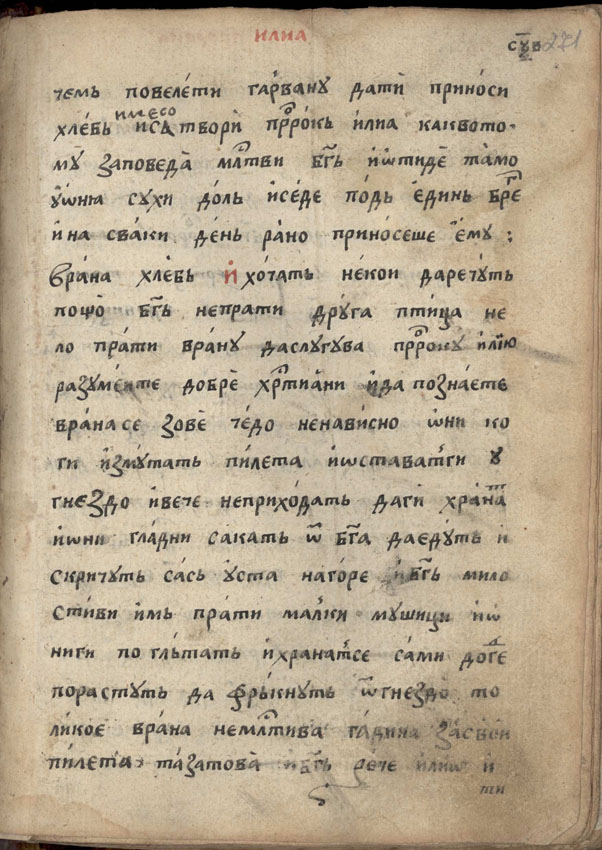 илиа
суⷡ҇в 271
чемь повелѣти гаⷬ҇вану дати̏ приноси
хлѣбь и месо исьтвори̏ прⷪ҇рокь илиа каквото·
мѹ̀ заповеда̏ млⷭ҇тви бг҃ь и҆ѡтиде тамо
ѹ҆ѡнꙗ сухи доль и҆седе подь е҆динь брѣⷢ҇
и҆ на сваки день рано приносеше е҆му :
врана хлѣбь и҆ хотать некои даречуть
пощо̀ бг҃ь непрати друга птица не
ло прати врану даслугува прⷪ҇року илїю
разумеите добрѣ хрⷭ҇тиѧни и҆да познаете
вранасе зове чедо ненависно ѡ҆ни ко
ги и҆змутать пилета и҆ѡставатⸯги у
гнездо и҆вече неприходать даги̏ храна
и҆ѡни гладни сакать ѿ бг҃а даедуть и҆
скричуть сась уста нагоре и҆бг҃ь мило
стиви имь прати малки мушици и҆ѡ
ниги поглътать и҆хранатⸯсе сами догⷣе
порастуть да фрькнуть ѿгнездо то
ликое врана немлⷭ҇тива гадина засвои
пилета· тазатова̏ и҆бг҃ь рече илиѡ и҆
ти